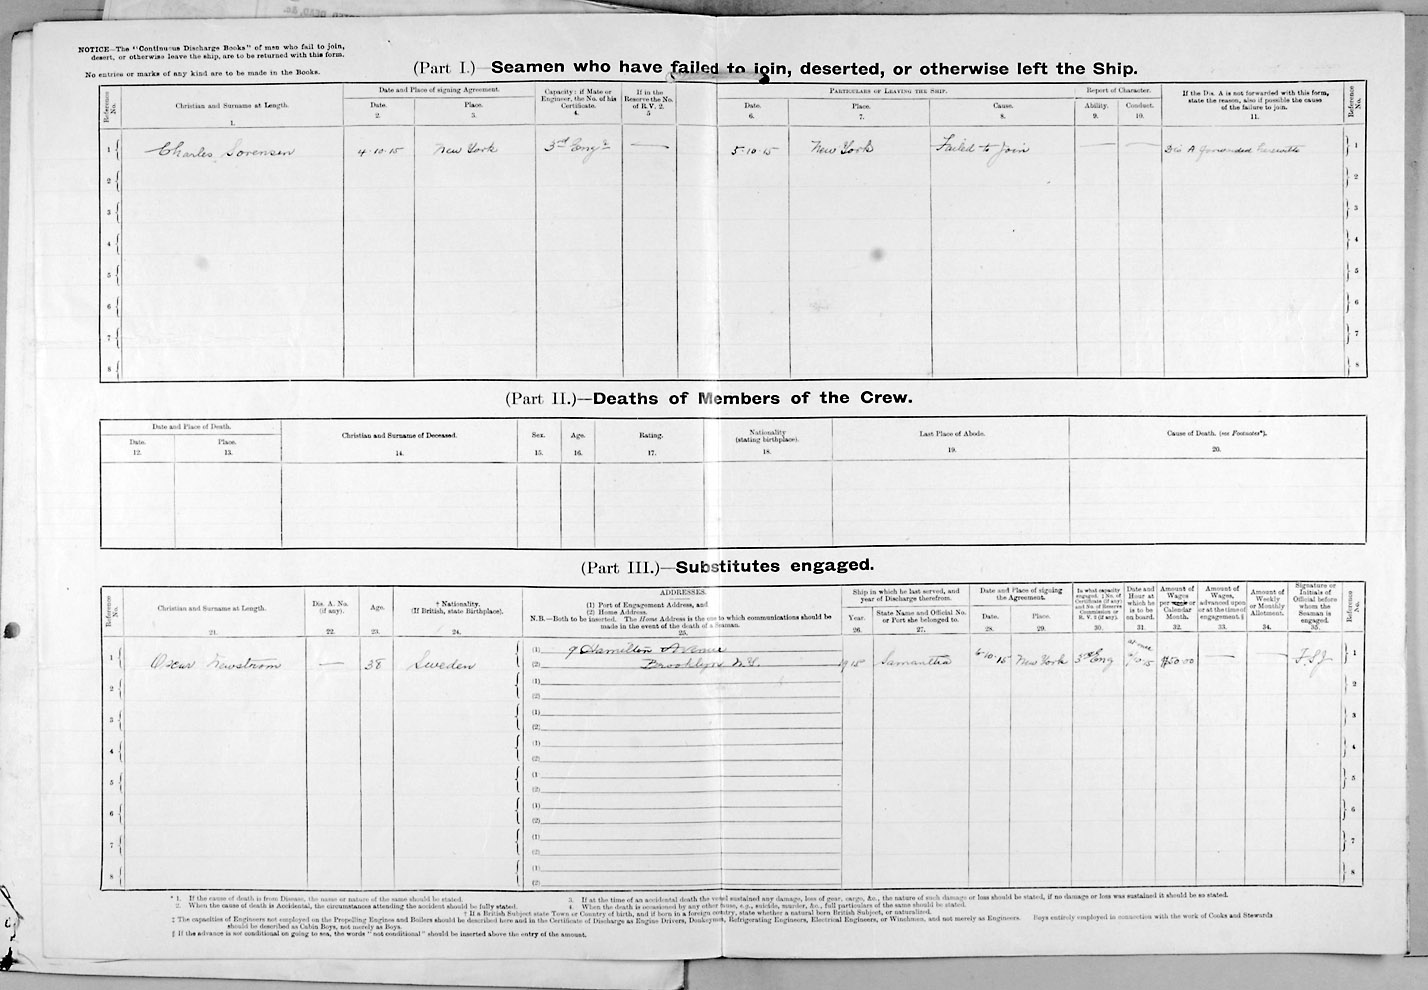 NOTICE—The "Continuous Discharge Books" of men who fail to join,
desert, or otherwise leave the ship, are to be returned with this form.
No entries or marks of any kind are to be made in the Books.
(Part I.)—Seamen who have failed to join, deserted, or otherwise left the Ship.
Reference No.
Christian and Surname at Length.
1.
Date and Place of signing Agreement.
Date.
2.
Place.
3.
Capacity: if Mate or
Engineer, the No. of his
Certificate.
4.
If in the
Reserve the No.
of R.V. 2.
5
Particulars of Leaving the Ship.
Date.
6.
Place.
7.
Cause.
8.
Report of Character.
Ability.
9.
Conduct.
10.
If the Dis. A is not forwarded with this form,
state the reason, also if possible the cause
of the failure to join.
11.
Reference No.
1 Charles Sorensen 4·10·15 New York 3rd Engr — 5·10·15 New York Failed to Join — — Dis A forwarded herewith 1
2 2
3 3
4 4
5 5
6 6
7 7
8 8
(Part II.)—Deaths of Members of the Crew.
Date and Place of Death.
Date.
12.
Place.
13.
Christian and Surname of Deceased.
14.
Sex.
15.
Age.
16.
Rating.
17.
Nationality
(stating birthplace).
18.
Last Place of Abode.
19.
Cause of Death. (see Footnotes*).
20.
(Part III.)—Substitutes engaged.
Reference No.
Christian and Surname at Length.
21.
Dis. A. No.
(if any).
22.
Age.
23.
† Nationality.
(If British, state Birthplace).
24.
ADDRESSES.
(1) Port of Engagement Address, and
(2) Home Address.
N.B.—Both to be inserted. The Home Address is the one to which communications should be
made in the event of the death of a Seaman.
25.
Ship in which he last served, and
year of Discharge therefrom.
Year.
26.
State Name and Official No.
or Port she belonged to.
27.
Date and Place of signing
the Agreement.
Date.
28.
Place.
29.
In what capacity
engaged. ‡ No. of
Certificate (if any)
and No. of Reserve
Commission or
R. V. 2 (if any).
30.
Date and
Hour at
which he
is to be
on board.
31.
Amount of
Wages
per week or
Calendar
Month.
32.
Amount of
Wages,
advanced upon
or at the time of
engagement.§
33.
Amount of
Weekly
or Monthly
Allotment.
34.
Signature or
Initials of
Official before
whom the
Seaman is
engaged.
35.
Reference No.
1 Oscar Newstrom — 38 Sweden (1) 9 Hamilton Avenue
(2) Brooklyn N.Y. 1915 Samantha 6·10·15 New York 3rd Eng at once $50·00 — — 1
2 (1) 2
(2)
3 (1) 3
(2)
4 (1) 4
(2)
5 (1) 5
(2)
6 (1) 6
(2)
7 (1) 7
(2)
8 (1) 8
(2)
* 1. If the cause of death is from Disease, the name or nature of the same should be stated.
2. When the cause of death is Accidental, the circumstances attending the accident should be fully stated.
3. If at the time of an accidental death the vessel sustained any damage, loss of gear, cargo, &c., the nature of such damage or loss should be stated, if no damage or loss was sustained it should be so stated.
4. When the death is occasioned by any other cause, e.g., suicide, murder, &c., full particulars of the same should be stated.
† If a British Subject state Town or Country of birth, and if born in a foreign country, state whether a natural born British Subject, or naturalized.
‡ The capacities of Engineers not employed on the Propelling Engines and Boilers should be described here and in the Certificate of Discharge as Engine Drivers, Donkeymen, Refrigerating Engineers, Electrical Engineers, or Winchmen, and not merely as Engineers. Boys entirely employed in connection with the work of Cooks and Stewards
should be described as Cabin Boys, not merely as Boys.
§ If the advance is not conditional on going to sea, the words "not conditional" should be inserted above the entry of the amount.